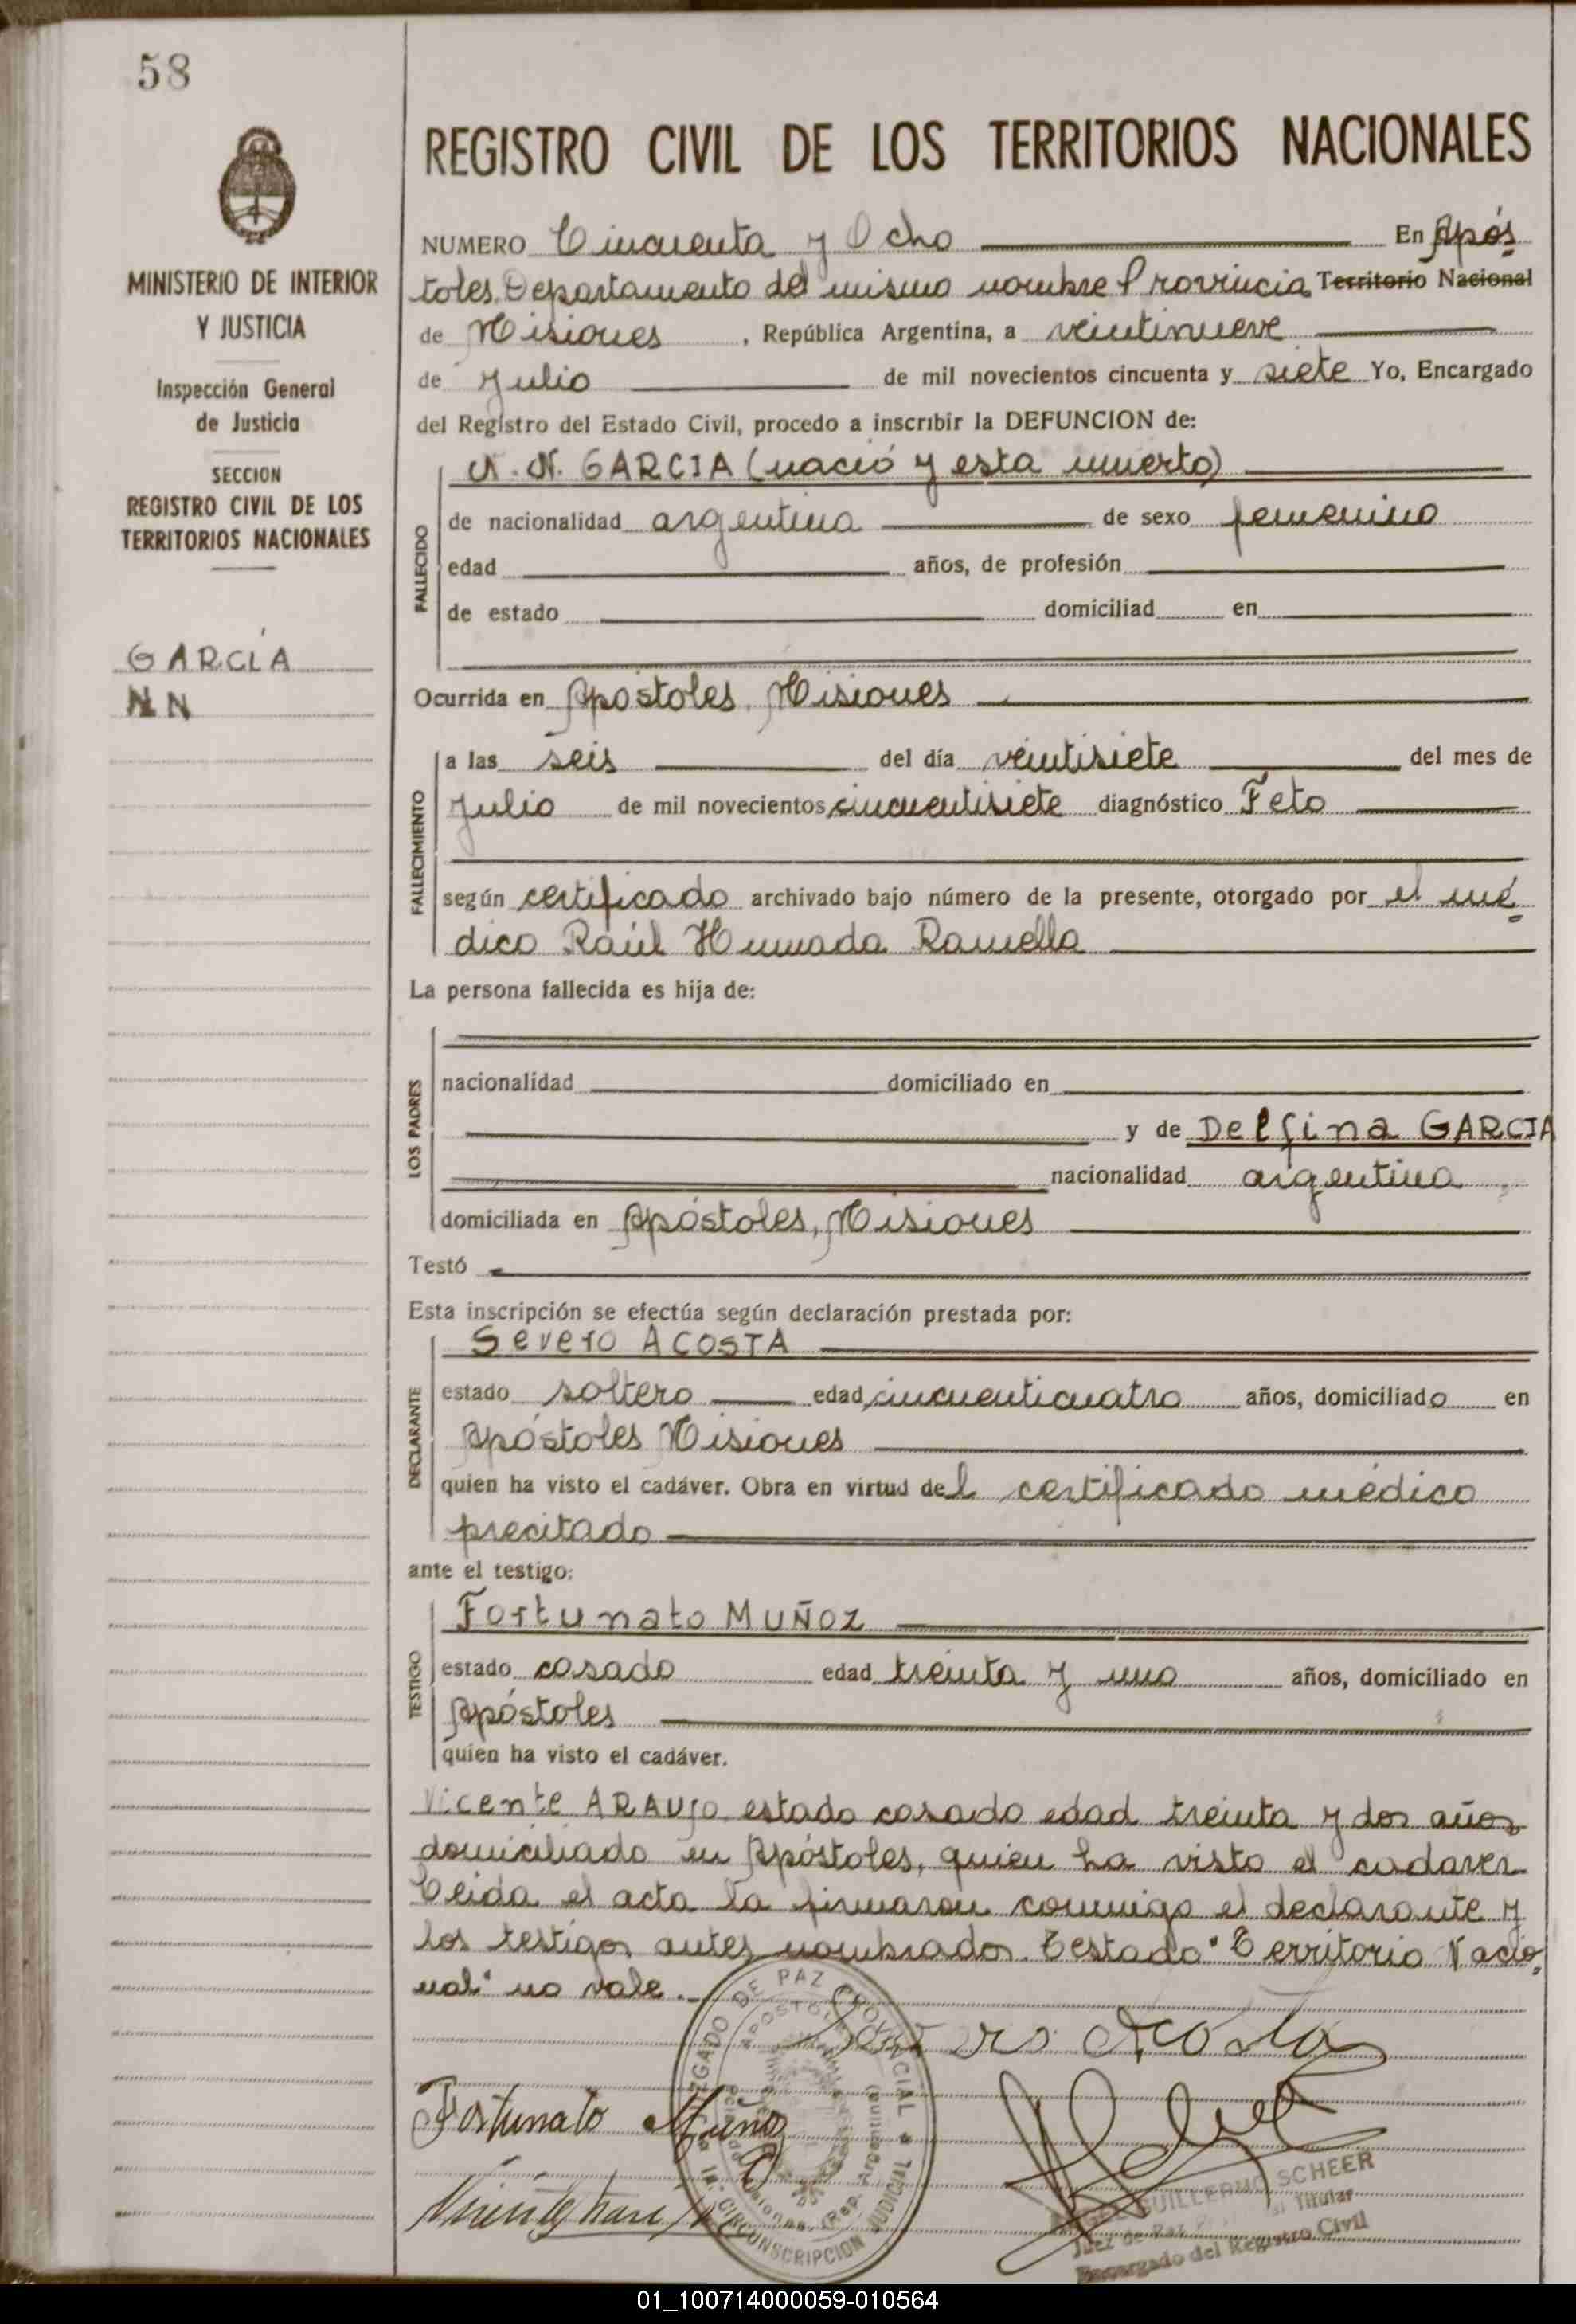 58
MINISTERIO DE INTERIOR
Y JUSTICIA
Inspección General
de Justicia
SECCION
REGISTRO CIVIL DE LOS
TERRITORIOS NACIONALES
GARCÍA
NN
REGISTRO CIVIL DE LOS TERRITORIOS NACIONALES
NUMERO Cincuenta y Ocho En Após
toles, Departamento del mismo nombre Provincia Territorio Nacional
de Misiones, República Argentina, a veintinueve
de Julio de mil novecientos cincuenta y siete Yo, Encargado
del Registro del Estado Civil, procedo a inscribir la DEFUNCION de:
FALLECIDO
N. N. GARCIA (nació y esta muerto)
de nacionalidad argentina de sexo femenino
edad años, de profesión
de estado domiciliad en
Ocurrida en Apóstoles, Misiones
FALLECIMIENTO
a las seis del día veintisiete del mes de
Julio de mil novecientos cincuentisiete diagnóstico Feto
según certificado archivado bajo número de la presente, otorgado por el mé
dico Raúl Ramella
La persona fallecida es hija de:
LOS PADRES
nacionalidad domiciliado en
y de Delfina GARCIA
nacionalidad argentina
domiciliada en Apóstoles, Misiones
Testó
Esta inscripción se efectúa según declaración prestada por:
DECLARANTE
Severo ACOSTA
estado soltero edad cincuenticuatro años, domiciliado en
Apóstoles Misiones
quien ha visto el cadáver. Obra en virtud del certificado médico
precitado
ante el testigo:
TESTIGO
Fortunato MUÑOZ
estado casado edad treinta y uno años, domiciliado en
Apóstoles
quien ha visto el cadáver.
Vicente ARAUJO estado casado edad treinta y dos años
domiciliado en Apóstoles, quien ha visto el cadaver
Leida el acta la firmaron conmigo el declarante y
los testigos antes nombrados. Testado "Territorio Nacio
nal" no vale.
JUZGADO DE PAZ PROVINCIAL
APOSTOLES
Misiones (Rep. Argentina)
1a. CIRCUNSCRIPCION JUDICIAL
Severo Acosta
Fortunato Muñoz
GUILLERMO SCHEER
Juez de Paz Titular
Encargado del Registro Civil
01_100714000059-010564